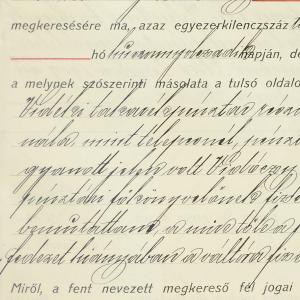 megkeresésére ma, azaz egyezerkilenczszáz
hó huszonnyolczadik napján, de
a melynek szószerinti másolata a tulsó oldalo
Vidéki takarékpénztár
nála, mint telepesnél, pénz
gyanott jelen volt
pénztári főkönyvelőnek fize
bemutattam, a mire tőle a f
fedezet hiányzában a váltóra fize
Miről, a fent nevezett megkereső fél jogai